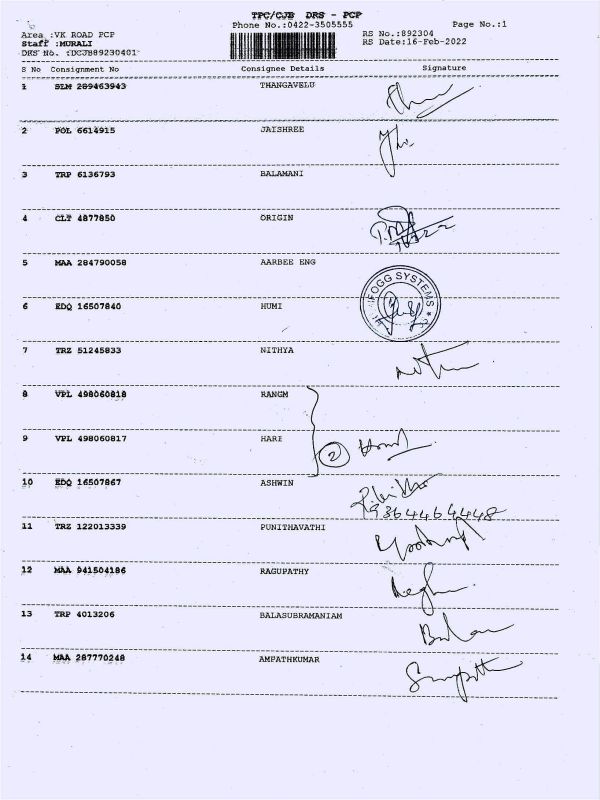 TPC/CJB DRS - PCP
Phone No.:0422-3505555
Page No.:1
Area :VK ROAD PCP
RS No.:892304
Staff :MURALI
RS Date:16-Feb-2022
DRS No. :DCJB89230401
S No Consignment No Consignee Details Signature
1 SLM 289463943 THANGAVELU
2 POL 6614915 JAISHREE
3 TRP 6136793 BALAMANI
4 CLT 4877850 ORIGIN
5 MAA 284790058 AARBEE ENG
FOGG SYSTEMS
6 EDQ 16507840 HUMI
7 TRZ 51245833 NITHYA
8 VPL 498060818 RANGM
9 VPL 498060817 HARI
2
10 EDQ 16507867 ASHWIN
9364464448
11 TRZ 122013339 PUNITHAVATHI
12 MAA 941504186 RAGUPATHY
13 TRP 4013206 BALASUBRAMANIAM
14 MAA 287770248 AMPATHKUMAR